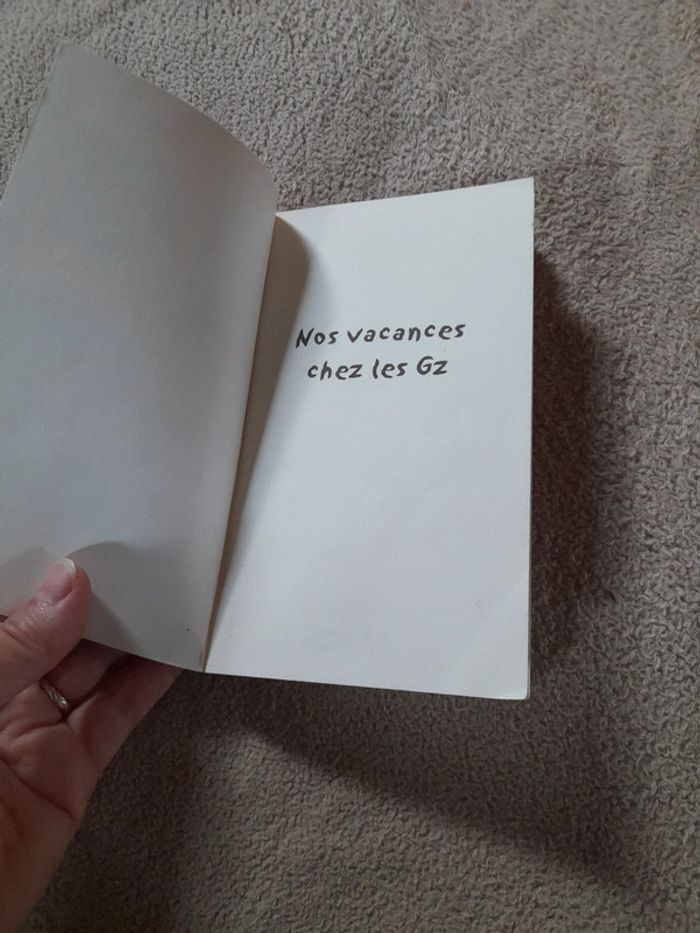 Nos vacances
chez les Gz